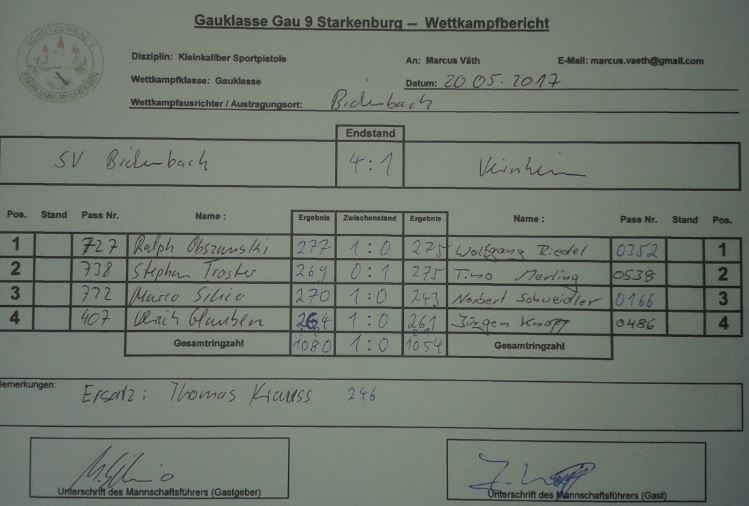 Gauklasse Gau 9 Starkenburg – Wettkampfbericht
Disziplin: Kleinkaliber Sportpistole An: Marcus Väth E-Mail: marcus.vaeth@gmail.com
Wettkampfklasse: Gauklasse Datum: 20.05.2017
Wettkampfausrichter / Austragungsort: Bickenbach
Endstand
SV Bickenbach 4:1 Viernheim
Pos. Stand Pass Nr. Name : Ergebnis Zwischenstand Ergebnis Name : Pass Nr. Stand Pos.
1 727 Ralph 277 1:0 275 Wolfgang Riedel 0352 1
2 738 Stephan Troster 269 0:1 275 Timo Merling 0538 2
3 772 Marco 270 1:0 243 Norbert Schweidler 0166 3
4 407 Ulrich Glauben 264 1:0 261 Jürgen Knopf 0486 4
Gesamtringzahl 1080 1:0 1054 Gesamtringzahl
Bemerkungen: Ersatz: Thomas Krauss 246
Unterschrift des Mannschaftsführers (Gastgeber) Unterschrift des Mannschaftsführers (Gast)